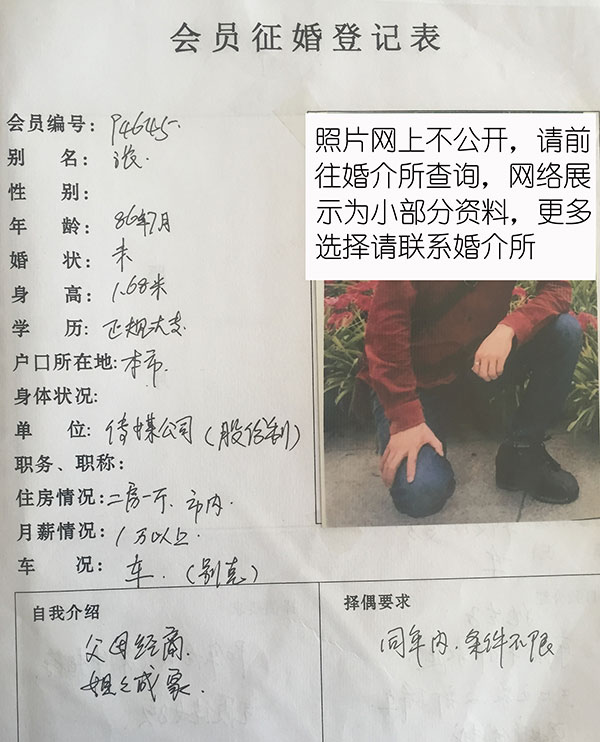 会员征婚登记表
会员编号: P4645
别 名: 张
性 别:
年 龄: 86年7月
婚 状: 未
身 高: 1.68米
学 历: 正规大专
户口所在地: 本市
身体状况:
单 位: 传媒公司(股份制)
职务、职称:
住房情况: 二房一厅.市内.
月薪情况: 1万以上
车 况: 车.(别克)
照片网上不公开，请前
往婚介所查询，网络展
示为小部分资料，更多
选择请联系婚介所
自我介绍
父母经商.
姐已成家.
择偶要求
同年内.条件不限